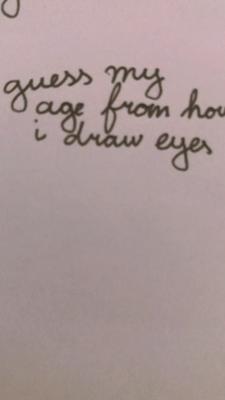 guess my
age from how
i draw eyes